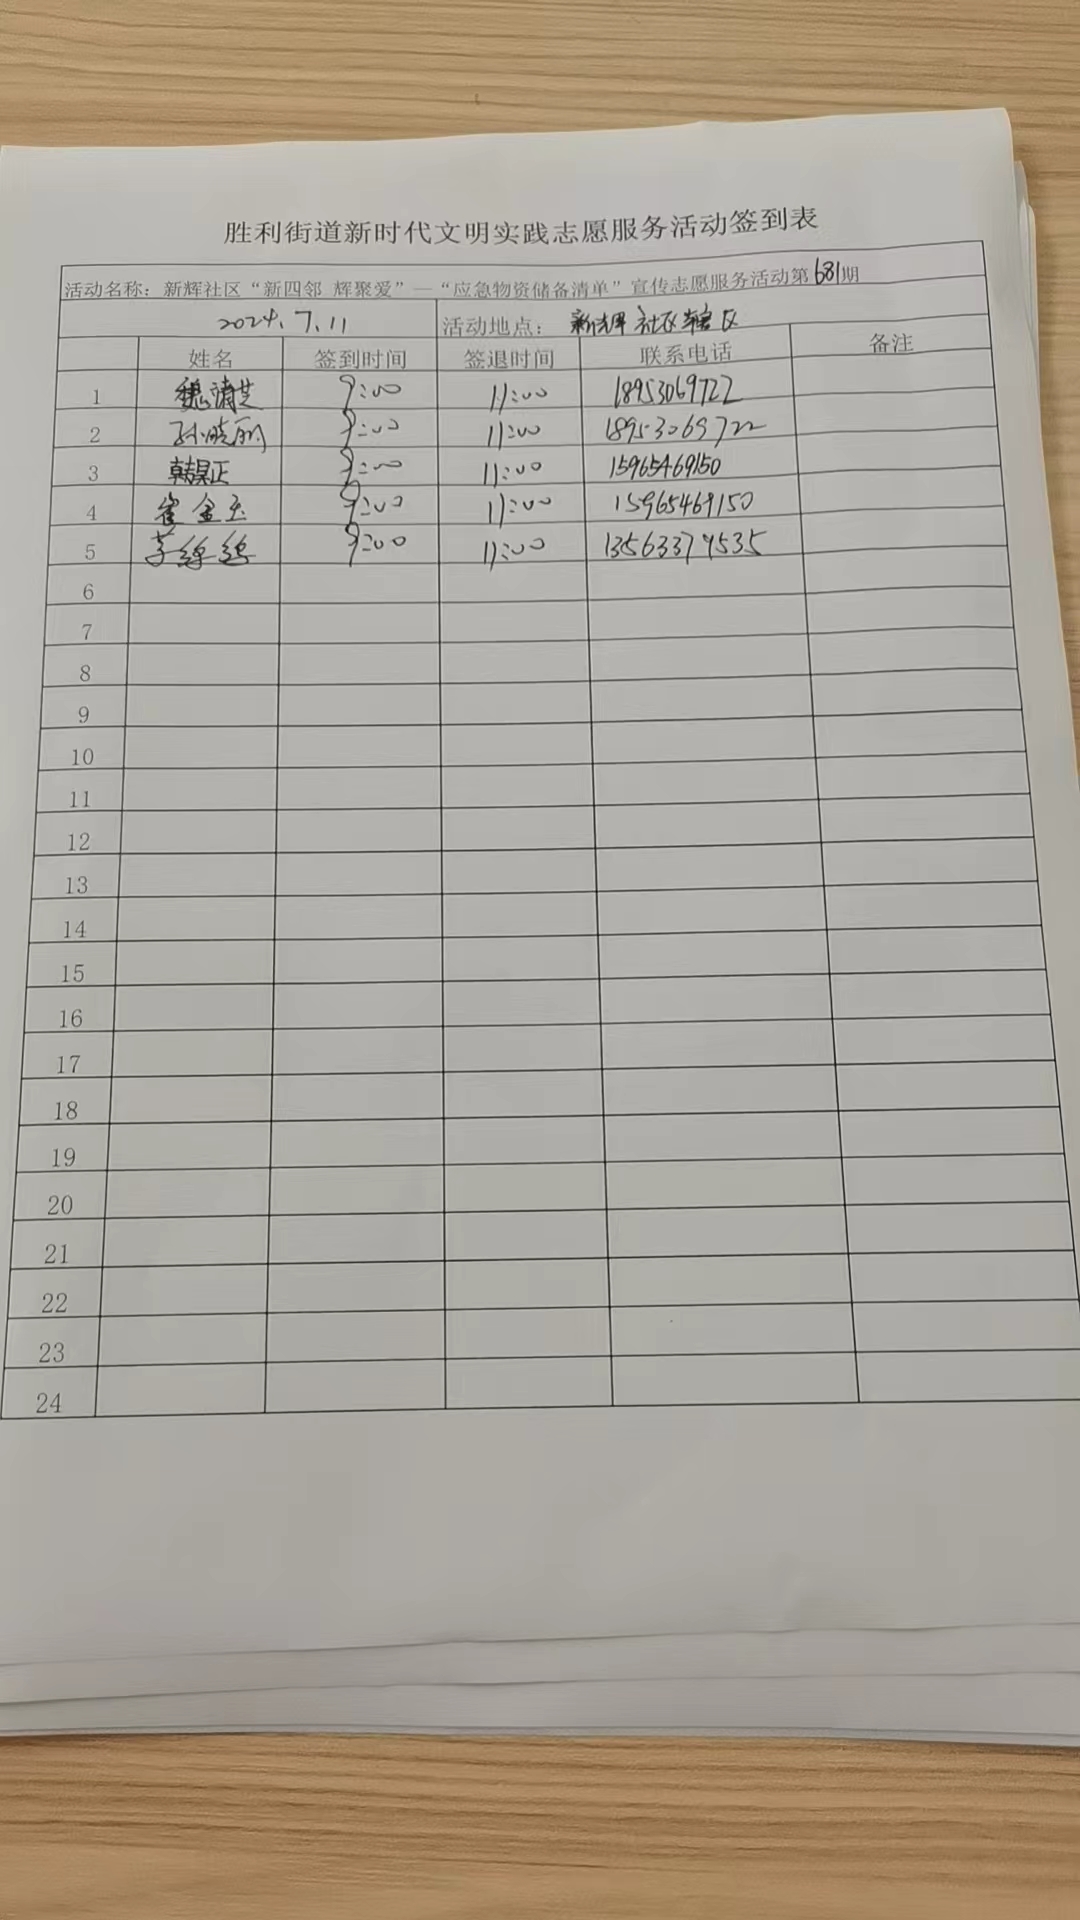 胜利街道新时代文明实践志愿服务活动签到表
活动名称：新辉社区“新四邻 辉聚爱”—“应急物资储备清单”宣传志愿服务活动第681期
2024.7.11 活动地点：新辉社区辖区
姓名 签到时间 签退时间 联系电话 备注
1 魏清芝 9:00 11:00 18953069722
2 孙晓丽 9:00 11:00 18953069722
3 韩昊正 9:00 11:00 15965469150
4 崔金玉 9:00 11:00 15965469150
5 9:00 11:00 13563379535
6
7
8
9
10
11
12
13
14
15
16
17
18
19
20
21
22
23
24